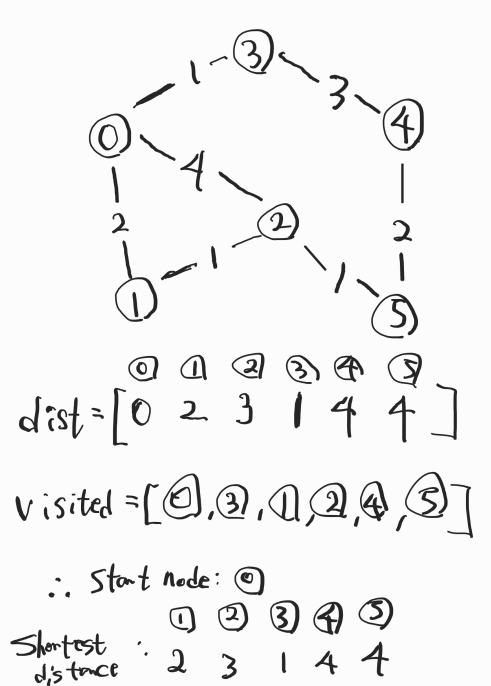 ③
1 3
⓪ ④
4
2 ② 2
1 1
① ⑤
⓪ ① ② ③ ④ ⑤
dist=[0 2 3 1 4 4]
visited=[⓪,③,①,②,④,⑤]
∴ Start node: ⓪
① ② ③ ④ ⑤
Shortest distance : 2 3 1 4 4